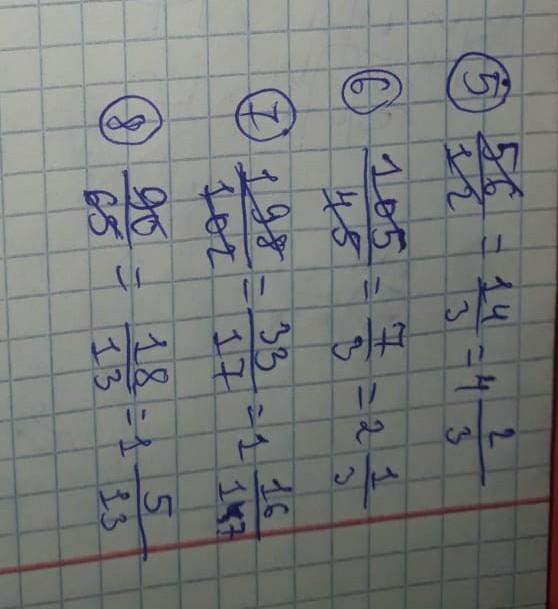 ⑤ 56/12 = 14/3 = 4 2/3
⑥ 105/45 = 7/3 = 2 1/3
⑦ 198/102 = 33/17 = 1 16/17
⑧ 90/65 = 18/13 = 1 5/13